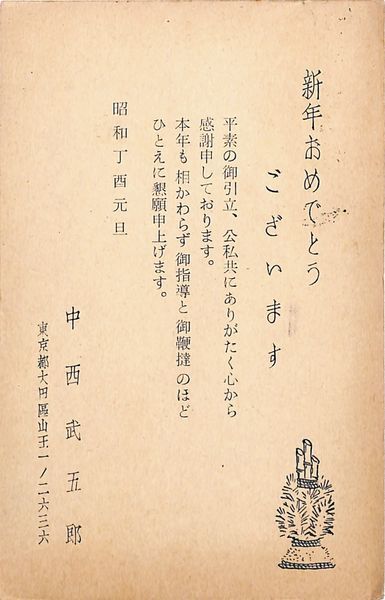 新年おめでとう
ございます
平素の御引立、公私共にありがたく心から
感謝申しております。
本年も相かわらず御指導と御鞭撻のほど
ひとえに懇願申上げます。
昭和丁酉元旦
中西武五郎
東京都大田區山王一ノ二六三六